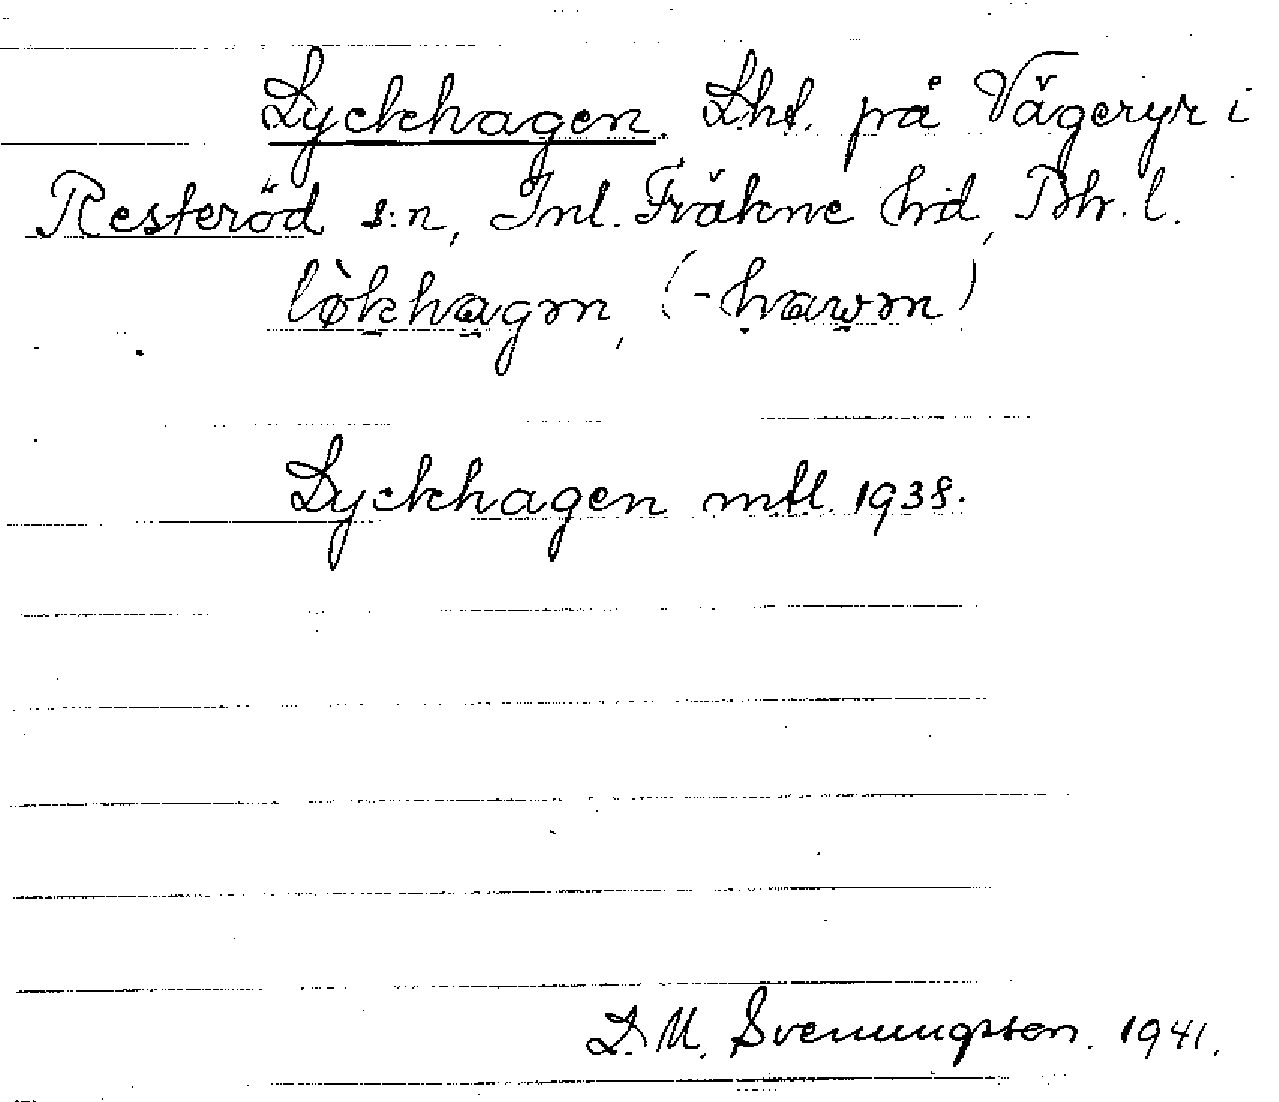 Lyckhagen. Lht. på Vägeryr i
Resteröd s:n, Inl. Fräkne hd, Bh. l.
lòkhagm, (-hawm)
Lyckhagen mtl. 1938.
L. M. Svenungsson. 1941.